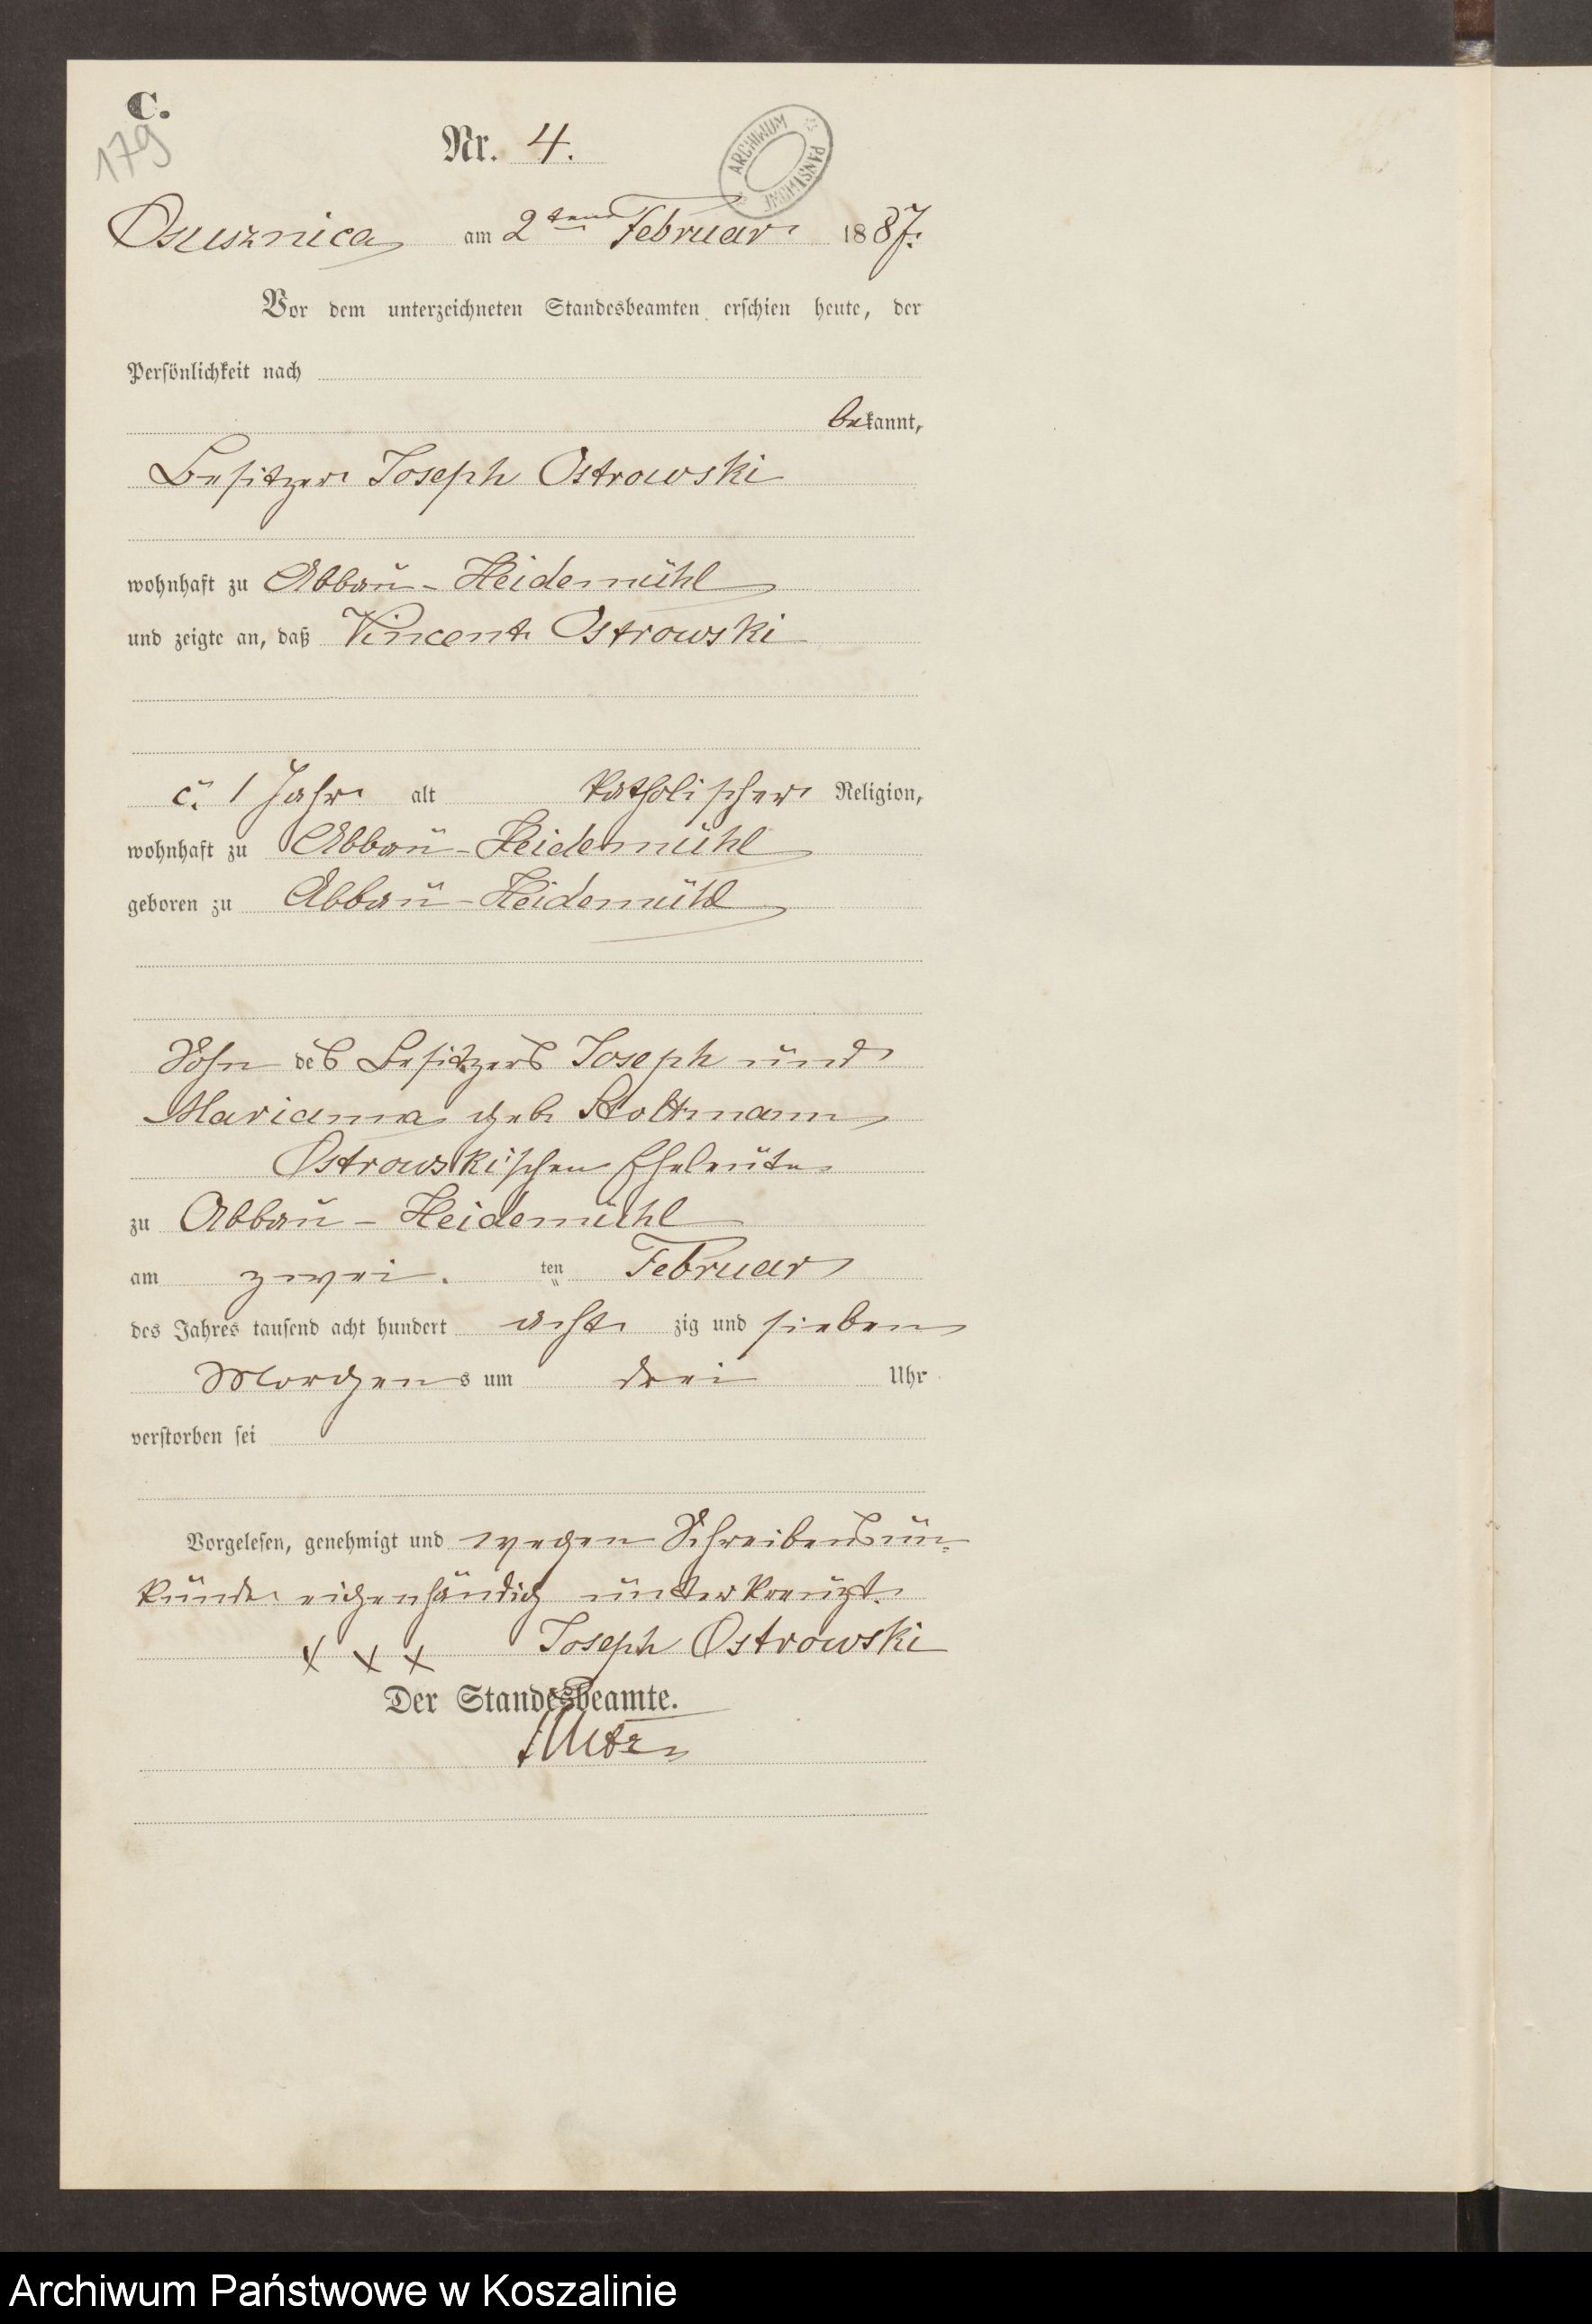 C.
179
Nr. 4.
ARCHIWUM PAŃSTWOWE
Osusznica am 2ten Februar 1887.
Vor dem unterzeichneten Standesbeamten erschien heute, der
Persönlichkeit nach
bekannt,
Besitzer Joseph Ostrowski
wohnhaft zu Abbau-Heidemühl
und zeigte an, daß Vincent Ostrowski
c. 1 Jahr alt katholischer Religion,
wohnhaft zu Abbau-Heidemühl
geboren zu Abbau-Heidemühl
Sohn des Besitzers Joseph und
Marianna geb Stoltmann
Ostrowskischen Eheleute
zu Abbau-Heidemühl
am zwei. ten Februar
des Jahres tausend acht hundert acht zig und sieben
Morgens um drei Uhr
verstorben sei
Vorgelesen, genehmigt und wegen Schreibensun-
kunde eigenhändig unterkreuzt.
x x x Joseph Ostrowski
Der Standesbeamte.
Archiwum Państwowe w Koszalinie